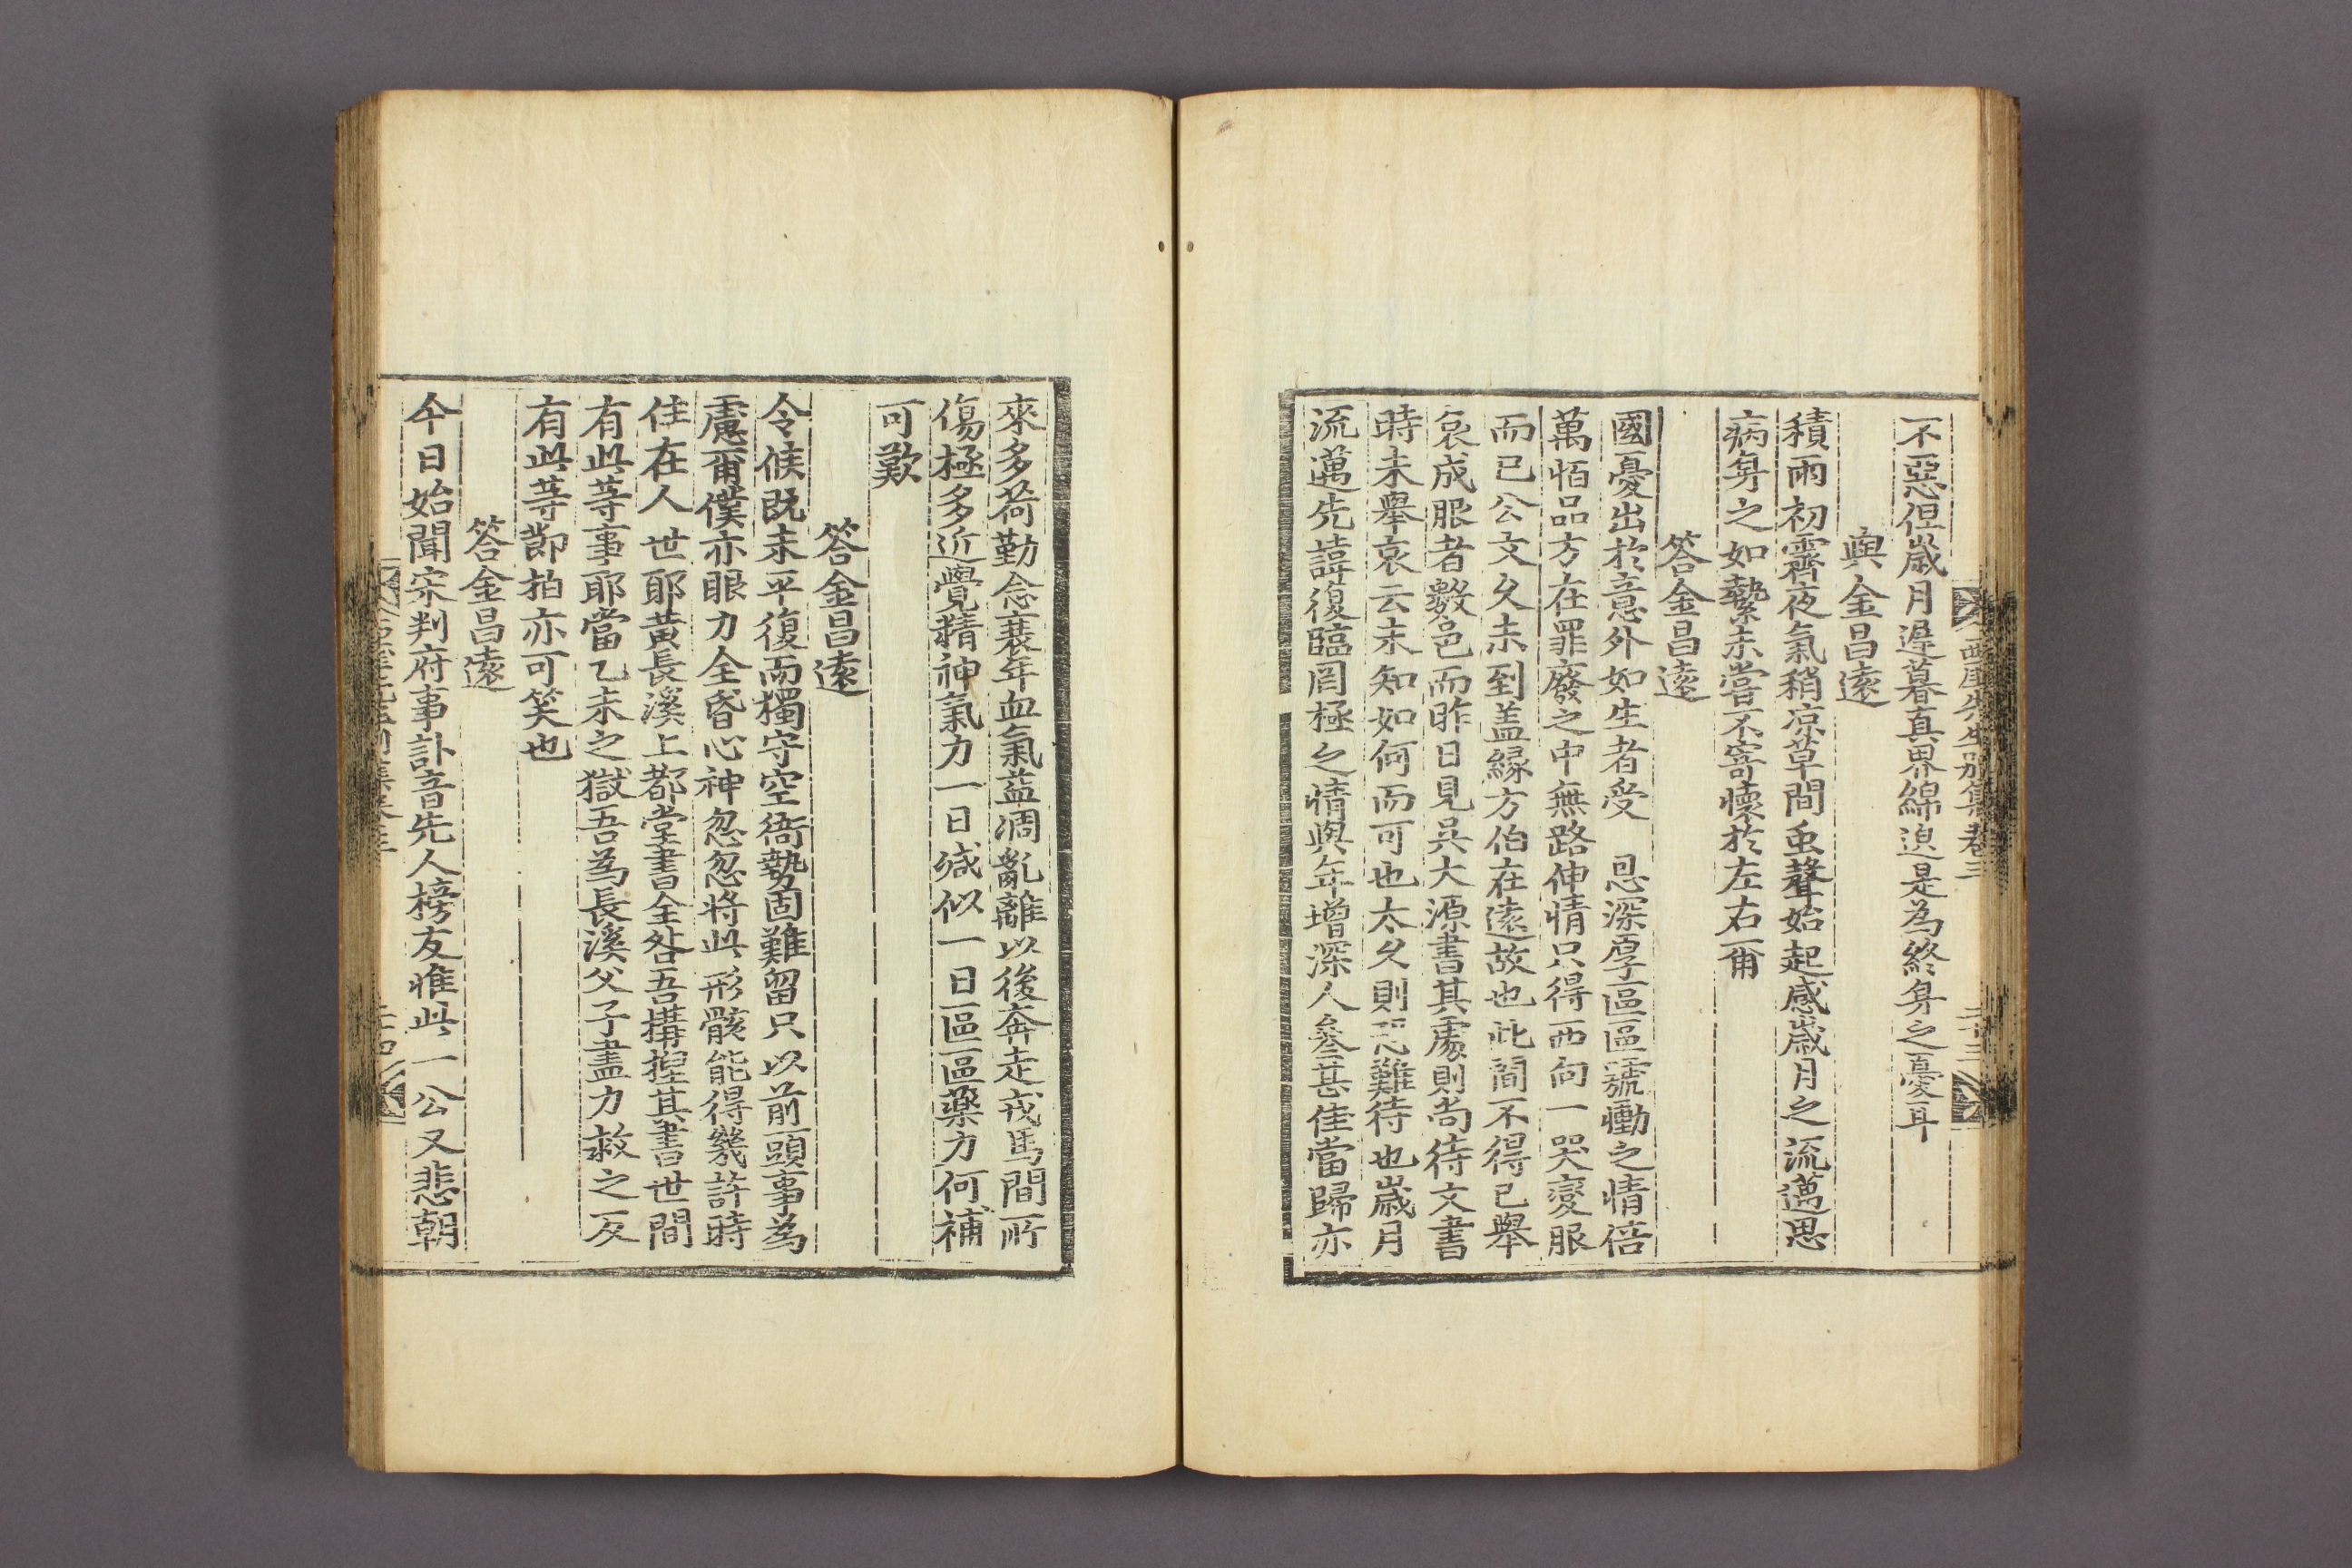 西厓先生別集卷三
二十三
不惡但歲月遲暮真界綿邈是為終身之憂耳
與金昌遠
積雨初霽夜氣稍凉草間虫聲始起感歲月之流邁思
病身之如縶未嘗不寄懷於左右爾
答金昌遠
國憂出於意外如生者受 恩深厚區區號慟之情倍
萬恒品方在罪廢之中無路伸情只得西向一哭變服
而已公文久未到盖緣方伯在遠故也此間不得已舉
哀成服者數邑而昨日見吳大源書其處則尚待文書
時未舉哀云未知如何而可也太久則恐難待也歲月
流邁先諱復臨罔極之情與年增深人參甚佳當歸亦
來多荷勤念衰年血氣益凋亂離以後奔走戎馬間所
傷極多近覺精神氣力一日減似一日區區藥力何補
可歎
答金昌遠
令候既未平復而獨守空衙勢固難留只以前頭事為
慮爾僕亦眼力全昏心神忽忽將此形骸能得幾許時
住在人世耶黃長溪上都堂書全咎吾搆揑其書世間
有此等事耶當乙未之獄吾為長溪父子盡力救之反
有此等節拍亦可笑也
答金昌遠
今日始聞宋判府事訃音先人榜友惟此一公又悲朝